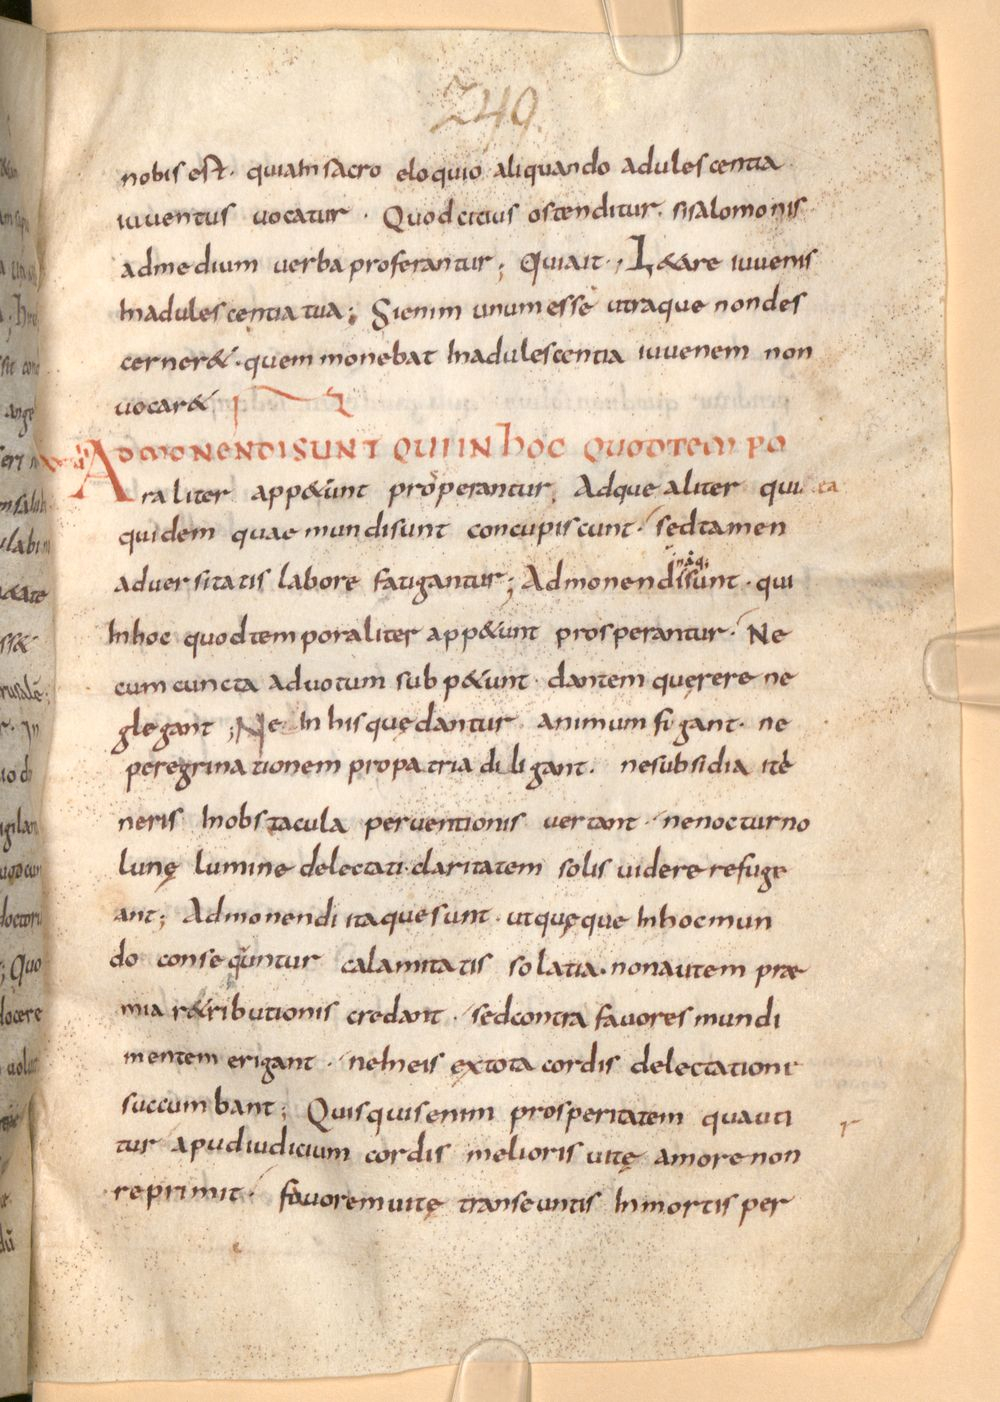 249.
nobis est. quia in sacro eloquio aliquando adulescentia
iuventus vocatur. Quod citius ostenditur. si salomonis
ad medium verba proferantur; Quia it. L&are iuvenis
In adulescentia tua; Si enim unum esse utraque non des
cerner&. quem monebat In adulescentia iuvenem non
vocar&
ADMONENDI SUNT QUI IN hOC QUOD TEMPO
raliter app&unt prosperantur, Adque aliter qui ta
quidem quae mundi sunt concupiscunt. sed tamen
adversitatis labore fatigantur; Admonendi namq; sunt. qui
In hoc quod temporaliter app&unt prosperantur. Ne
cum cuncta ad votum subp&unt. dantem querere ne
glegant; Ne In his quę dantur animum figant. ne
peregrinationem pro patria diligant. ne subsidia ite
neris In obstacula perventionis vertant. ne nocturno
lunę lumine delectati. claritatem solis videre refuge
ant; Admonendi itaque sunt. ut quęque In hoc mun
do consequntur calamitatis solatia. non autem præ
mia r&ributionis credant. sed contra favores mundi
mentem erigant. ne In eis ex tota cordis delectatione
succumbant; Quisquis enim prosperitatem qua uti
tur apud iudicium cordis melioris vitę amore non r
reprimit. favorem vitę transeuntis In mortis per